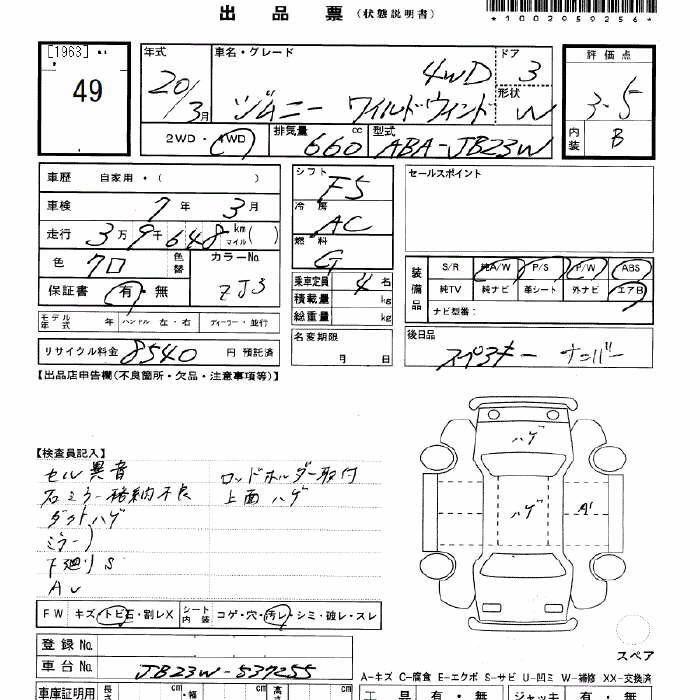 出品票 (状態説明書)
*1002959256*
[1963]
49
年式 20/3月
車名・グレード 4WD
ジムニー ワイルドウインド
ドア 3
形状 W
評価点 3.5
内装 B
2WD・4WD
排気量 660 cc
型式 ABA-JB23W
車歴 自家用・( )
車検 7年 3月
走行 3万9千648 km マイル( )
色 クロ 色替
カラーNo ZJ3
保証書 有・無
モデル年式 年 ハンドル 左・右 ディーラー・並行
リサイクル料金 8540 円 預託済
シフト F5
冷房 AC
燃料 G
乗車定員 4 名
積載量 kg
総重量 kg
名変期限 月 日
セールスポイント
装備品 S/R 純A/W P/S P/W ABS
純TV 純ナビ 革シート 外ナビ エアB
ナビ型番:
後日品 スペアキー ナンバー
【出品店申告欄(不良箇所・欠品・注意事項等)】
【検査員記入】
セル異音
右ミラー格納不良
ダクトハゲ
ミラー)
下廻りS
AU
ロッドホルダー取付
上面ハゲ
ハゲ
ハゲ
A1
スペア
FW キズ・トビ石・割レX シート内装 コゲ・穴・汚レ・シミ・破レ・スレ
登録No.
車台No. JB23W-537255
A-キズ C-腐食 E-エクボ S-サビ U-凹ミ W-補修 XX-交換済
車庫証明用 長さ cm ・幅 cm 高さ cm
工具 有・無 ジャッキ 有・無